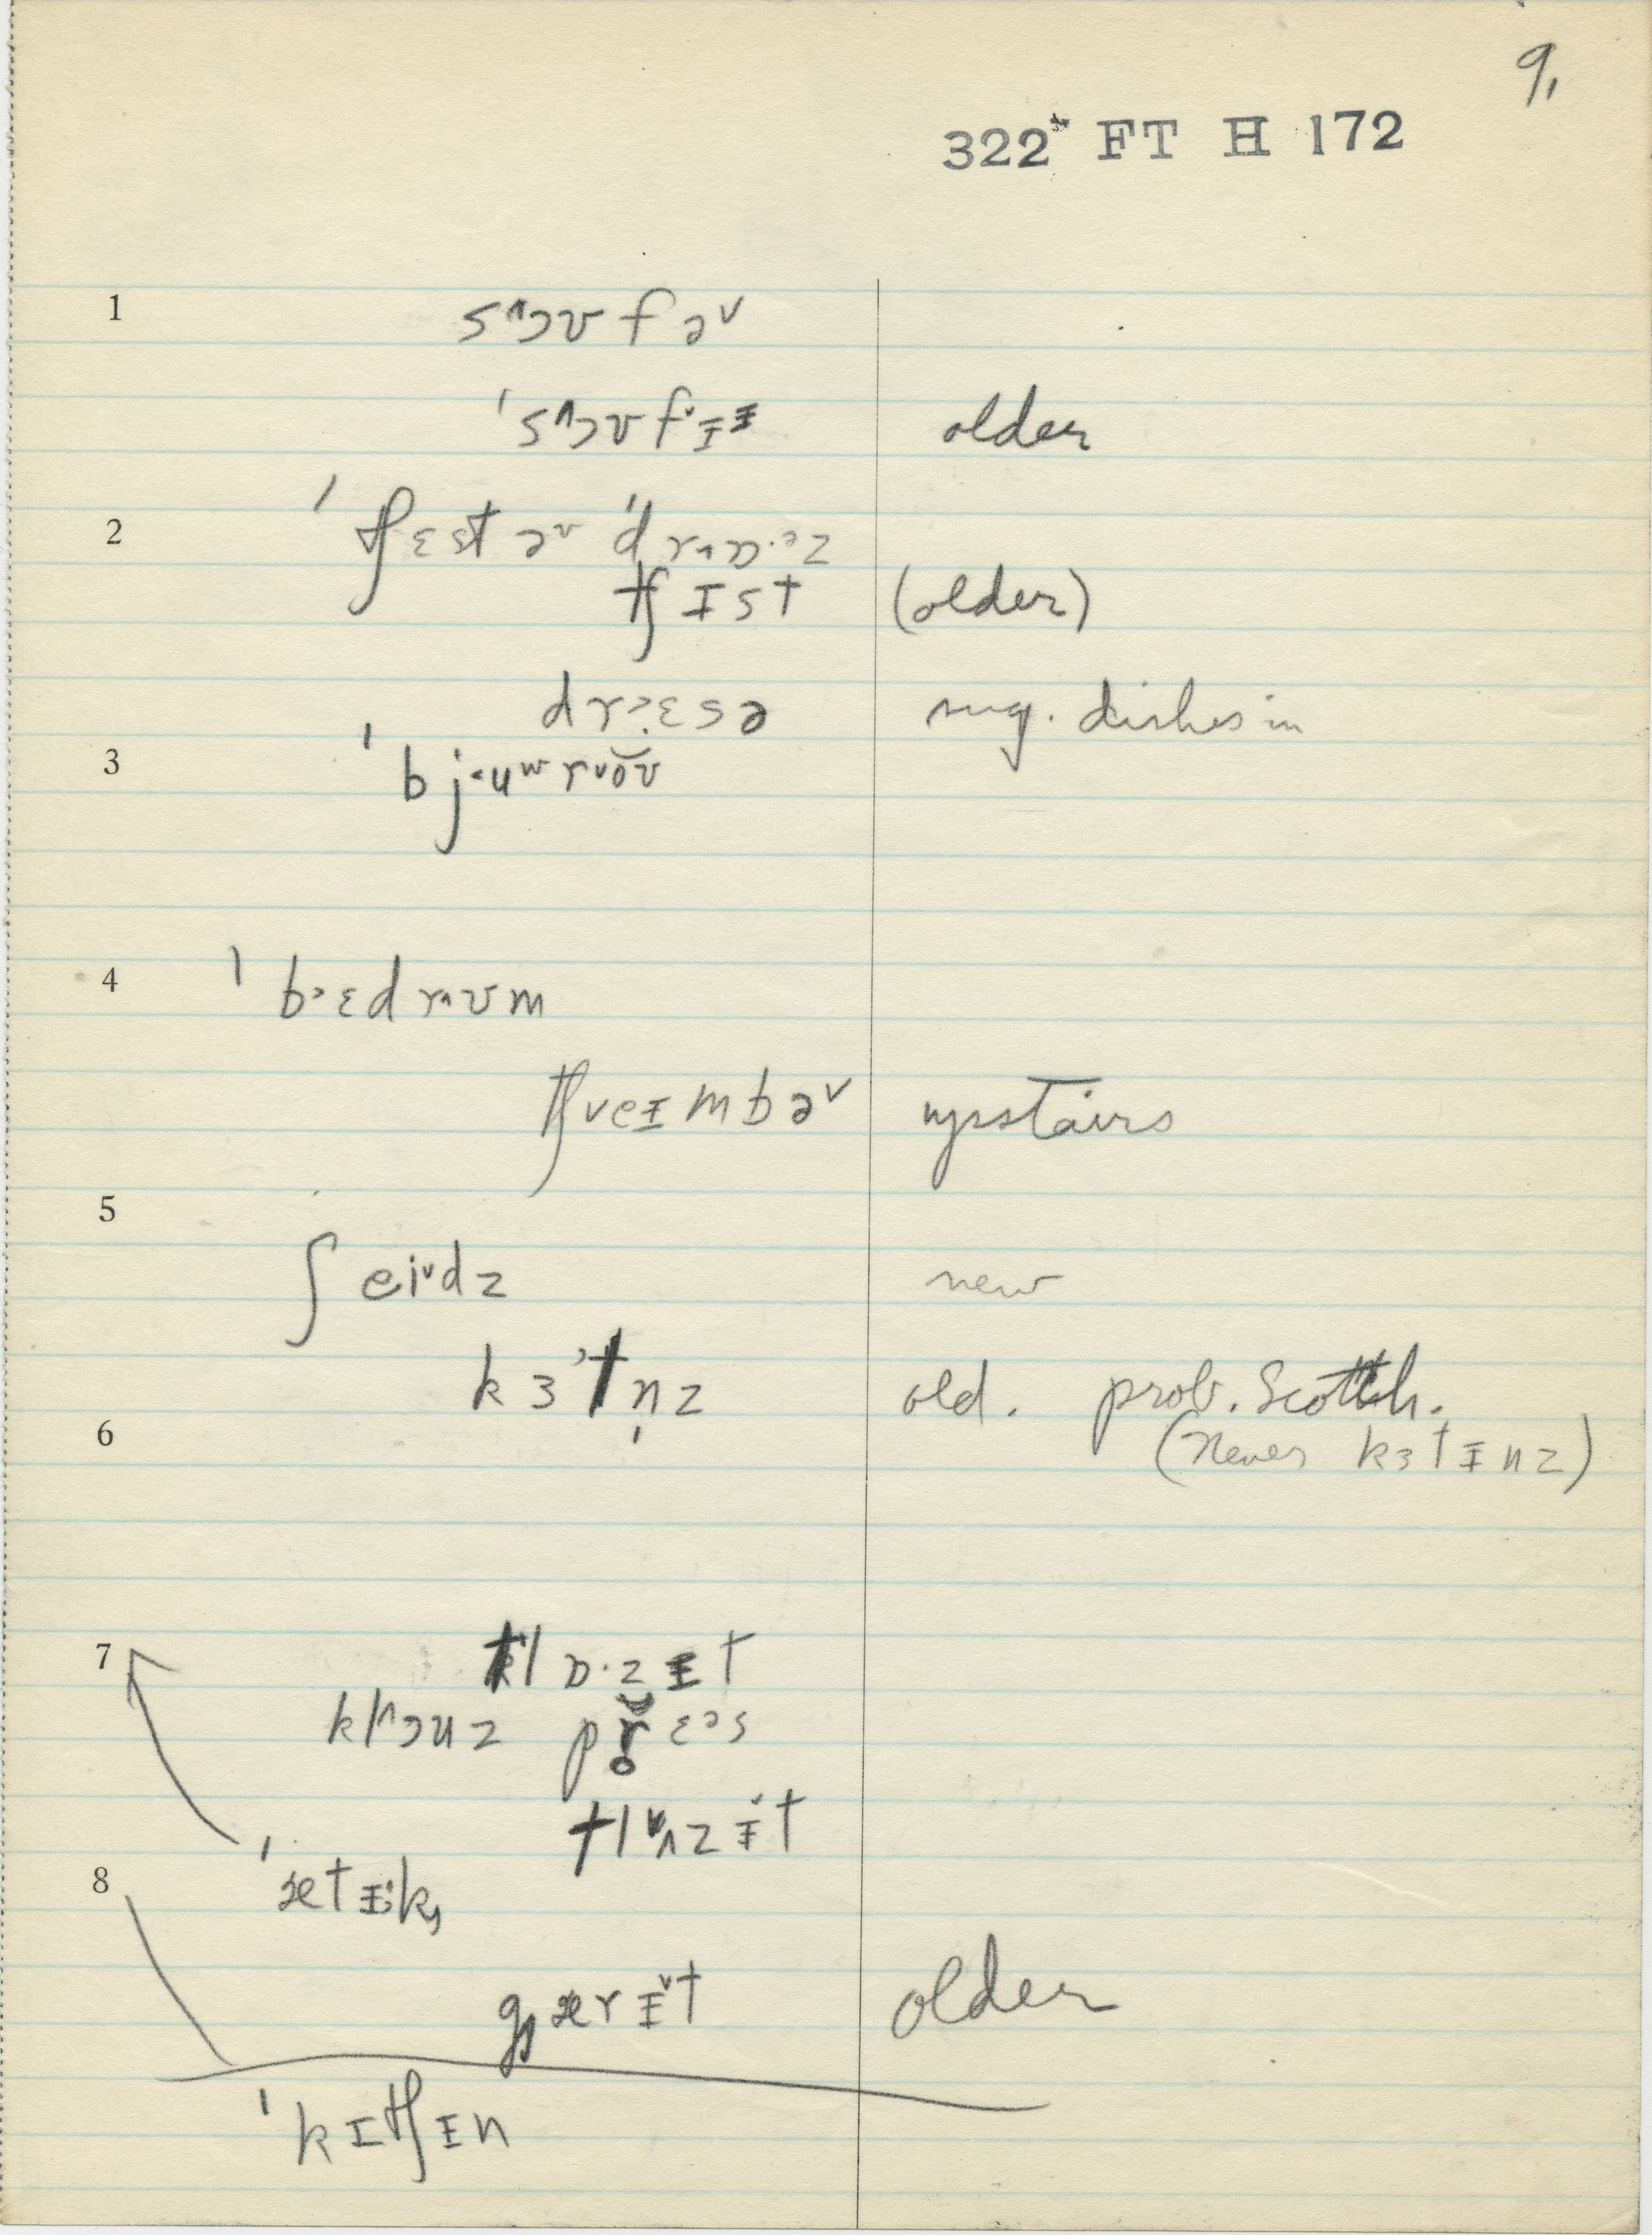 9,
322 FT H 172
1 s^ɔʊfə˅
ˈs^ɔʊf˅ᵻᵻ older
2 ˈtʃɛst ə˅ ˈdr^ɒ·ᵊz
tʃɪst (older)
drɛsə sug. dishes in
3 ˈbjʉʷr˅oʊ
4 ˈb˃ɛdr^ʊm
tʃ˅eɪmbə˅ upstairs
5 ʃei˅dz new
kɜˀtn̩z old. prob. Scottish.
6 (never kɜtᵻnz)
7 tlɒ·zᵻt
kl^ɔuz pr̥ɛᵊs
tl˅ʌzᵻ˅t
8 ˈætᵻk,
gærᵻ˅t older
ˈkɪtʃᵻn